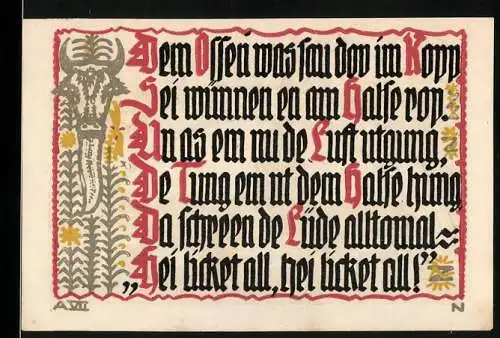 Dem Ossen was sau dov im Kopp
Sei wünnen en am Halse rop.
Un as em nu de Luft utgung,
De Tung em ut dem Halse hung
Da schrêen de Lüde alltomal
„Hei licket all, hei licket all!"
A VII
N